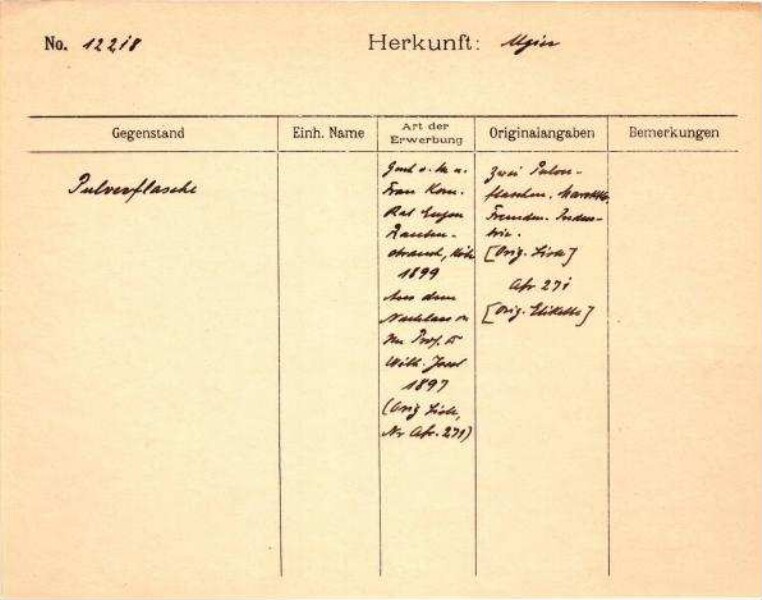 No. 12218
Herkunft:
Gegenstand
Einh. Name
Art der
Erwerbung
Originalangaben
Bemerkungen
Pulverflasche
Frau Kom.
Rat Eugen
Rauten-
strauch,
1899
Aus dem
Nachlass
Prof.
Wilh. Joest
1897
(Orig Liste,
Nr Afr. 271)
Zwei Pulver-
flaschen.
Fremden-Indus-
trie.
[Orig. Liste]
Afr 271
[Orig. Etikette]